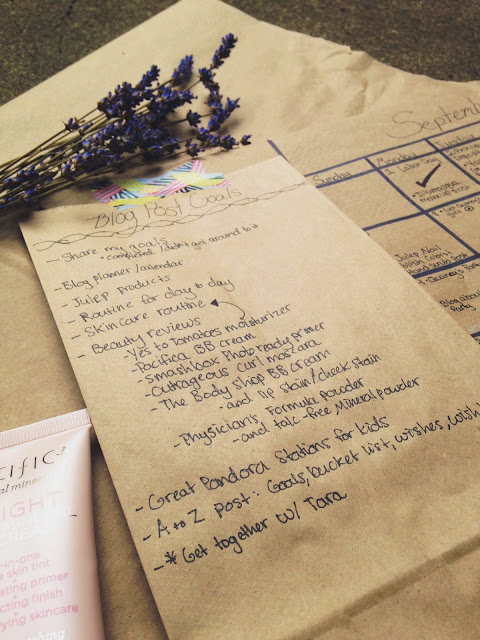 Blog Post Goals
- Share my goals
• completed / didn't get around to it
- Blog planner/calendar
- Julep products
- Routine for day to day
- Skin care routine
- Beauty reviews
- Yes to Tomatoes moisturizer
- Pacifica BB cream
- Smashbox Photo ready primer
- Outrageous curl mascara
- The Body Shop BB cream
- and lip stain/cheek stain
- Physicians Formula powder
- and talc-free Mineral powder
- Great Pandora Stations for kids
- A to Z post: Goals, bucket list, wishes, wish
- * Get together w/ Tara
Septemb
Sunday
Monday
Tuesday
1 Labor Day
Julep Nail
Party
cific
al mine
IGHT
in-one
skin tint
ating primer
cting finish
fying skincare